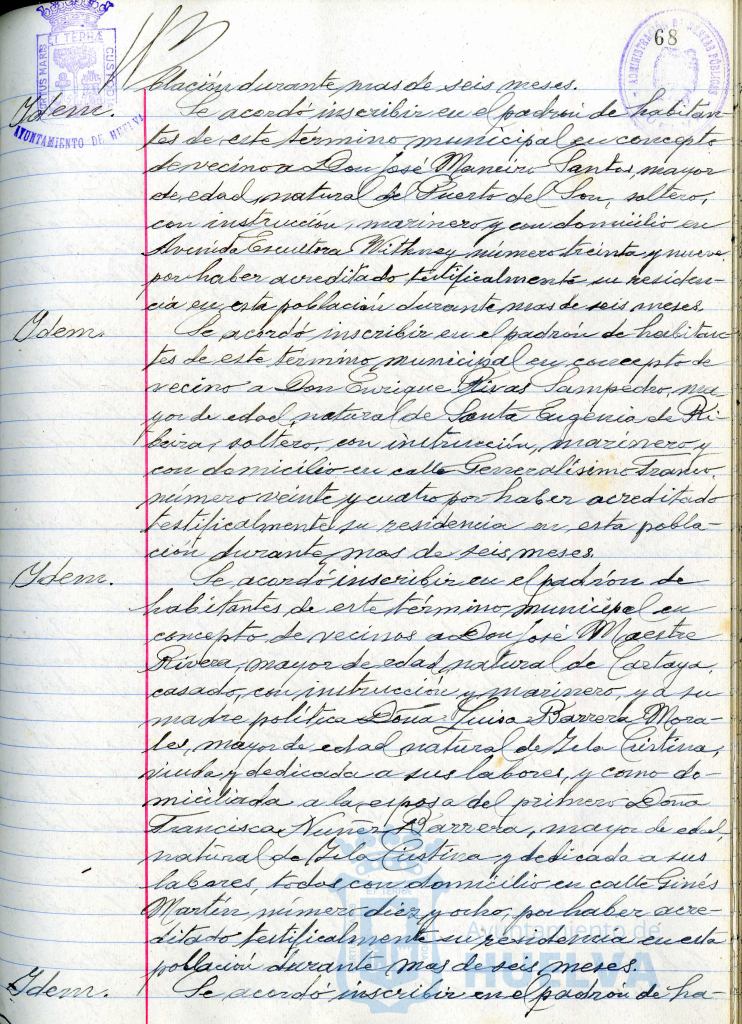 68
AYUNTAMIENTO DE HUELVA
blación durante mas de seis meses.
Idem. Se acordó inscribir en el padrón de habitan-
tes de este término municipal en concepto
de vecino a Don José Maneiro Santos, mayor
de edad, natural de Puerto del Son, soltero,
con instrucción, marinero y con domicilio en
Avenida Escultora Withney número treinta y nueve
por haber acreditado testificalmente su residen-
cia en esta población durante mas de seis meses.
Idem. Se acordó inscribir en el padrón de habitan-
tes de este término municipal en concepto de
vecino a Don Enrique Rivas Sampedro, ma
yor de edad, natural de Santa Eugenia de Ri
beira, soltero, con instrucción, marinero y
con domicilio en calle Generalísimo Franco,
número veinte y cuatro por haber acreditado
testificalmente su residencia en esta pobla-
ción durante mas de seis meses.
Idem. Se acordó inscribir en el padrón de
habitantes de este término municipal en
concepto de vecinos a Don José Maestre
Rivera, mayor de edad, natural de Cartaya,
casado, con instrucción y marinero, y a su
madre política Doña Luisa Barrera Mora-
les, mayor de edad natural de Isla Cristina,
viuda y dedicada a sus labores, y como do-
miciliada a la esposa del primero Doña
Francisca Nuñez Barrera, mayor de edad,
natural de Isla Cristina y dedicada a sus
labores, todos con domicilio en calle Ginés
Martín, número diez y ocho, por haber acre-
ditado testificalmente su residencia en esta
población durante mas de seis meses.
Idem. Se acordó inscribir en el padrón de ha-
Ayuntamiento de
HUELVA